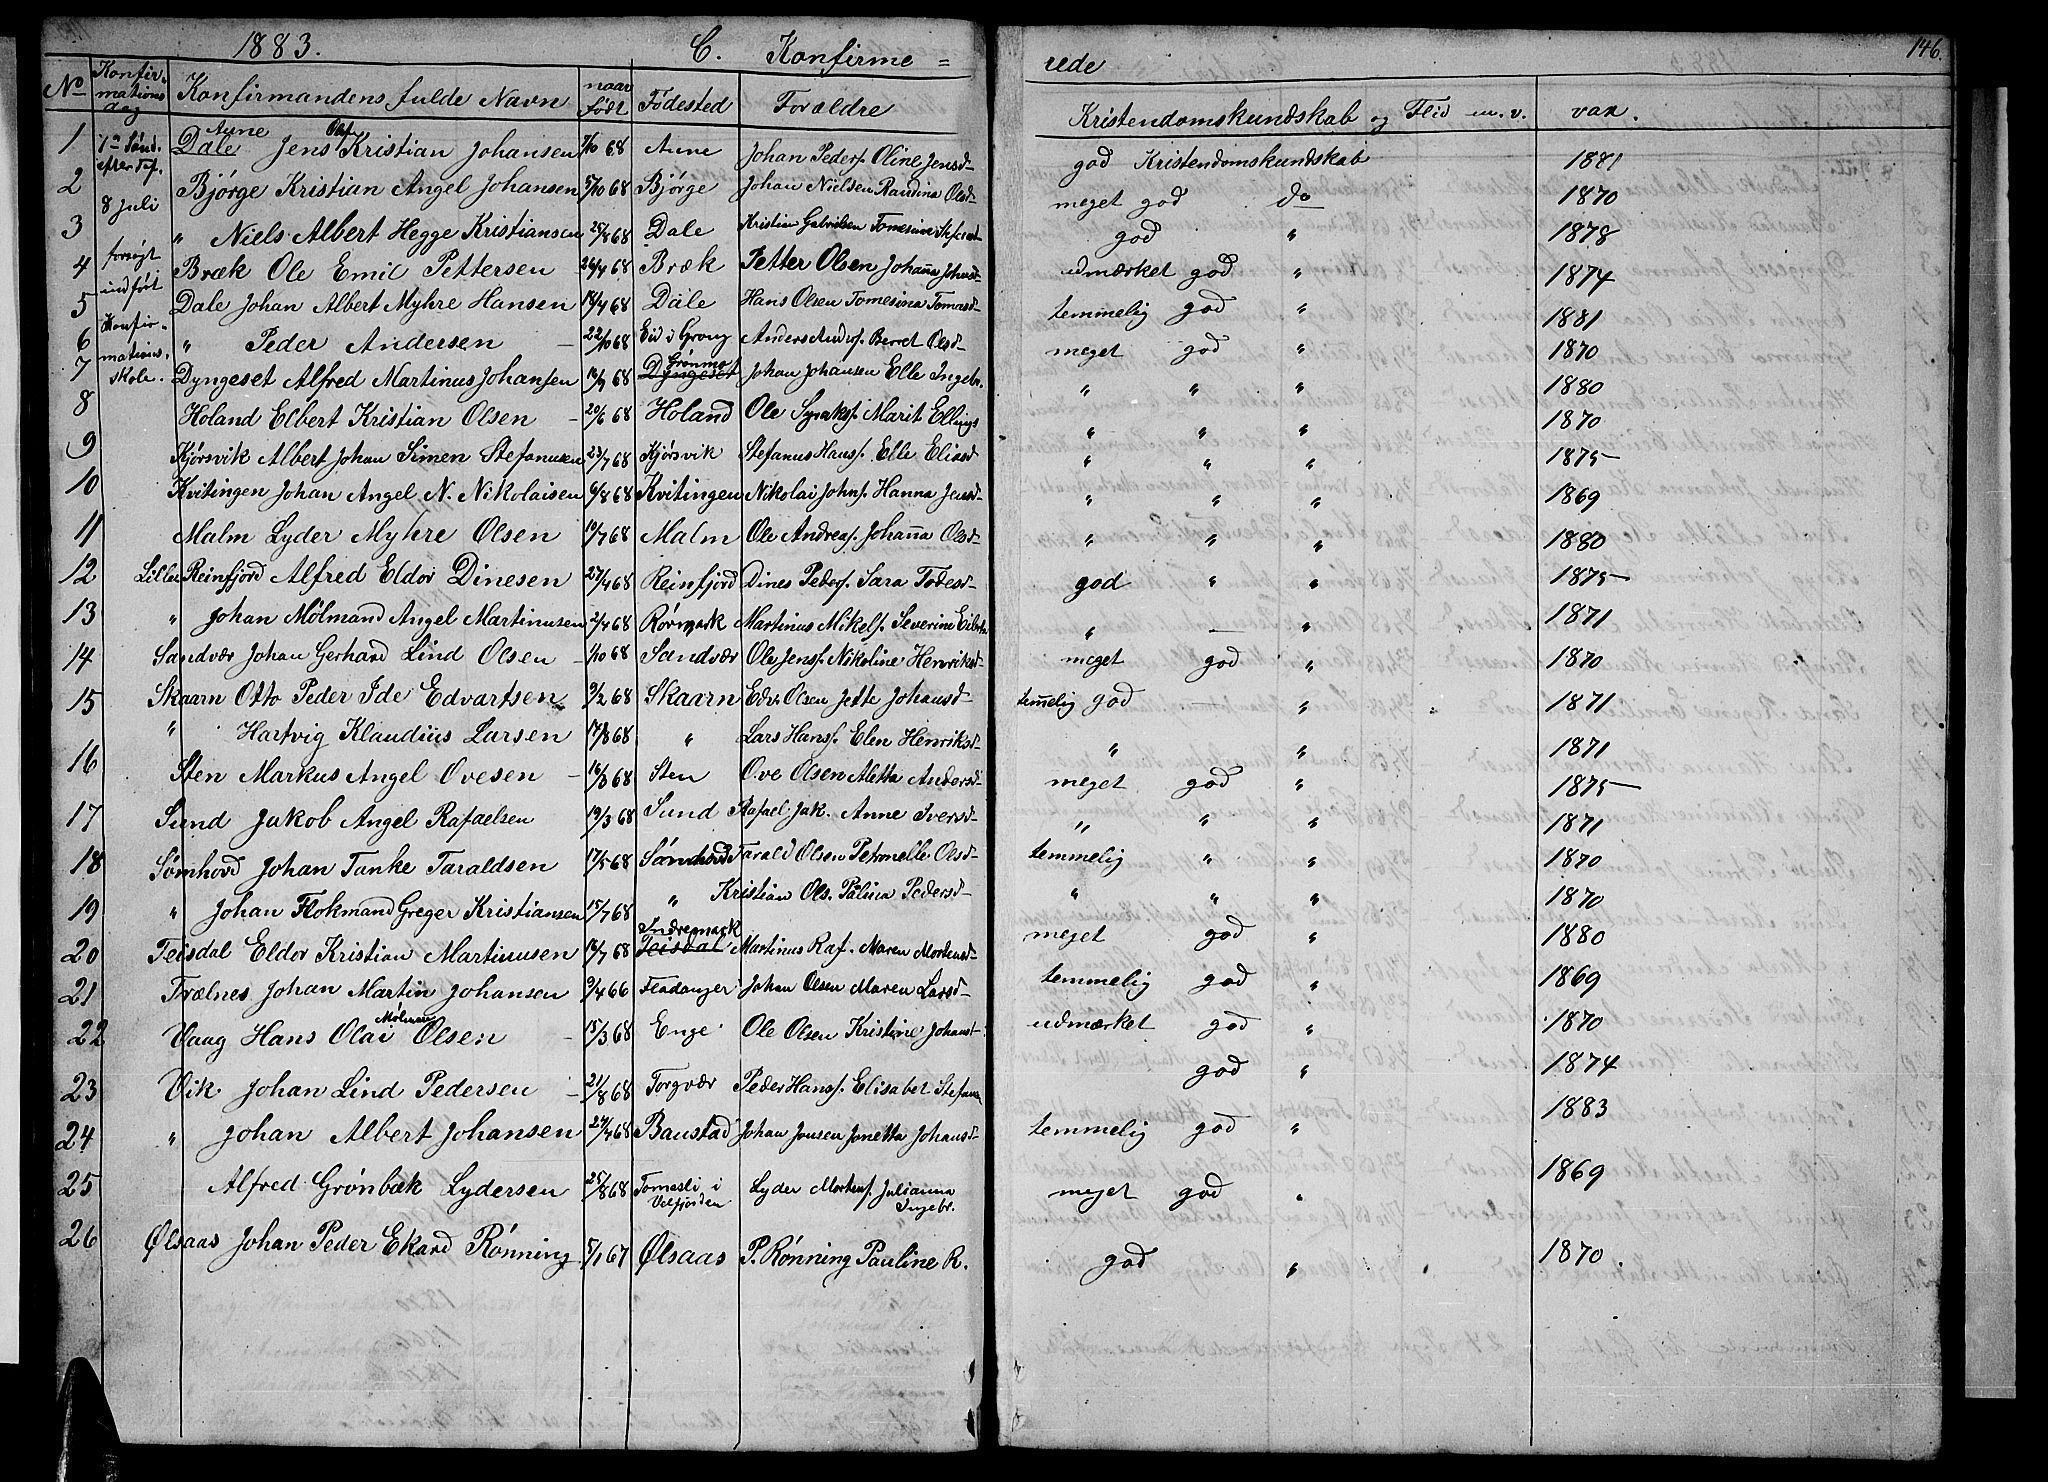 1883. C. Konfirme = rede 146.
No Konfirmations dag Konfirmandens fulde Navn naar født Fødested Forældre Kristendomskundskab og Flid m. v. vax.
7de Sønd. efter Tref. 8 Juli forsøgt indført Konfirmations skole.
1 Dale Aune Jens Olaf Kristian Johansen 7/10 68 Aune Johan Peders. Oline Jensd- god Kristendomskundskab 1881
2 Bjørge Kristian Angel Johansen 5/10 68 Bjørge Johan Nielsen Randina Olsd- meget god do 1870
3 " Niels Albert Hegge Kristiansen 25/8 68 Dale Kristian Gabrielsen Tomesine god " 1878
4 Bræk Ole Emil Pettersen 26/4 68 Bræk Petter Olsen Johanna udmærket god " 1874
5 Dale Johan Albert Myhre Hansen 18/4 68 Dale Hans Olsen Tomesina Tomasd- temmelig god " 1881
6 " Peder Andersen - 22/10 68 Eid i Grong Anders Anders. Berret Olsd- meget god " 1870
7 Dyngeset Alfred Martinus Johansen 68 Dyngeset Grønmo Johan Johansen Elle Ingebr. " " " 1880
8 Holand Elbert Kristian Olsen - 20/6 68 Holand Ole Marit Ellings " " " 1870
9 Kjørsvik Albert Johan Simen Stefanusen 23/7 68 Kjørsvik Stefanus Hans. Elle Eliasd- " " " 1875
10 Kvitingen Johan Angel N. Nikolaisen 6/8 68 Kvitingen Nikolai Johns. Hanna Jensd- " " " 1869
11 Malm Lyder Myhre Olsen 19/7 68 Malm Ole Andreas. Johanna Olsd- " " " 1880
12 Lille Reinfjord Alfred Eldor Dinesen 27/4 68 Reinfjord Dines Peders. Sara god " " 1875
13 " Johan Mølmand Angel Martinusen 2/4 68 Rørmark Martinus Mikels. Severine " - " 1871
14 Sandvær Johan Gerhard Lind Olsen - 1/10 68 Sandvær Ole Jens. Nikoline Henriksd- meget god " 1870
15 Skaarn Otto Peder Ide Edvartsen 9/2 68 Skaarn Edv. Olsen Jette Johansd- temmelig god - " 1871
" Hartvig Klaudius Larsen 17/8 68 " Lars Hans. Elen Henriksd- " " 1871
16 Sten Markus Angel Ovesen - 16/3 68 Sten Ove Olsen Aletta Andersd- meget god " 1875
17 Sund Jakob Angel Rafaelsen 19/3 68 Sund Rafael Jak. Anne Iversd- " " " 1871
18 Sømhovd Johan Tanke Taraldsen 17/5 68 Sømhovd Tarald Olsen Petronelle Olsd- temmelig " " 1870
19 " Johan Flokmand Greger Kristiansen 15/7 68 " Kristian Ols. Palina Pedersd- " " " 1870
20 Teisdal Eldor Kristian Martinusen 16/7 68 Teisdal Indremark Martinus Raf. Maren Mortensd- meget god " 1880
21 Trælnes Johan Martin Johansen 9/4 66 Fladanger Johan Olsen Maren Larsd- temmelig god " 1869
22 Vaag Hans Olai Mølman Olsen - 15/3 68 Enge Ole Olsen Kristine Johansd- udmærket god " 1870
23 Vik Johan Lind Pedersen - 21/8 68 Torgvær Peder Hans. Elisabet god " 1874
1883
24 " Johan Albert Johansen 27/4 68 Baustad Johan Jonsen Jonetta Johansd- temmelig god "
25 Alfred Grønbæk Lydersen 25/8 68 Tomasli i Velfjorden Lyder Mortens. Julianna Ingebr. meget god " 1869
26 Ølsaas Johan Peder Ekard Rønning 5/1 67 Ølsaas P. Rønning Pauline R. god " 1870